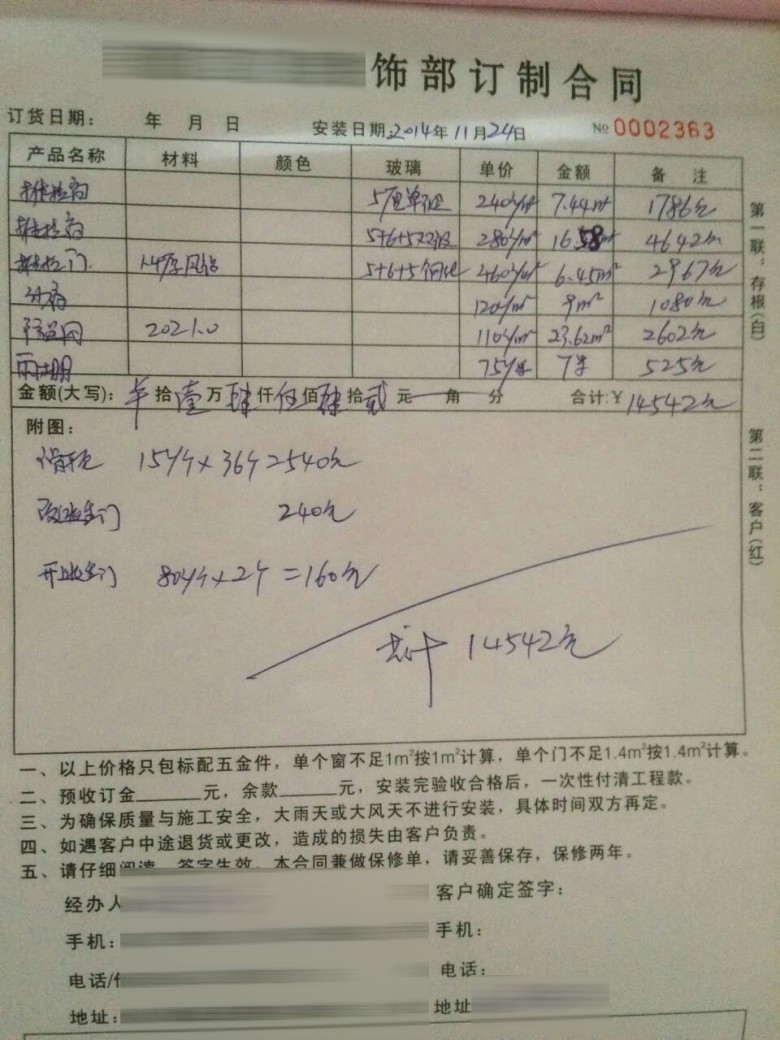 饰部订制合同
订货日期: 年 月 日 安装日期:2014年11月24日 № 0002363
产品名称 材料 颜色 玻璃 单价 金额 备 注
推拉窗 5厘单玻 240/㎡ 7.44㎡ 1786元
推拉窗 5+6+5双玻 280/㎡ 16.58㎡ 4642元
推拉门 1.4厚 5+6+5钢化 460/㎡ 6.45m² 2967元
120/㎡ 9m² 1080元
2021.0 110/㎡ 23.62m² 2602元
雨棚 75/米 7米 525元
金额(大写): 拾壹万肆仟伍佰肆拾贰元 角 分 合计:¥ 14542元
第一联:存根(白)
第二联:客户(红)
附图:
15/个×36个 540元
改 门 240元
开 门 80/个×2个=160元
共计 14542元
一、以上价格只包标配五金件,单个窗不足1m²按1m²计算,单个门不足1.4m²按1.4m²计算。
二、预收订金______元,余款______元,安装完验收合格后,一次性付清工程款。
三、为确保质量与施工安全,大雨天或大风天不进行安装,具体时间双方再定。
四、如遇客户中途退货或更改,造成的损失由客户负责。
五、请仔细阅读,签字生效。本合同兼做保修单,请妥善保存,保修两年。
经办人 客户确定签字:
手机: 手机:
电话/ 电话:
地址: 地址